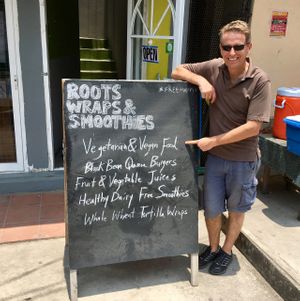 OPEN
ROOTS
WRAPS &
SMOOTHIES
Vegetarian & Vegan Food
Black Bean Quinoa Burgers
Fruit & Vegetable Juices
Healthy Dairy Free Smoothies
Whole Wheat Tortilla Wraps